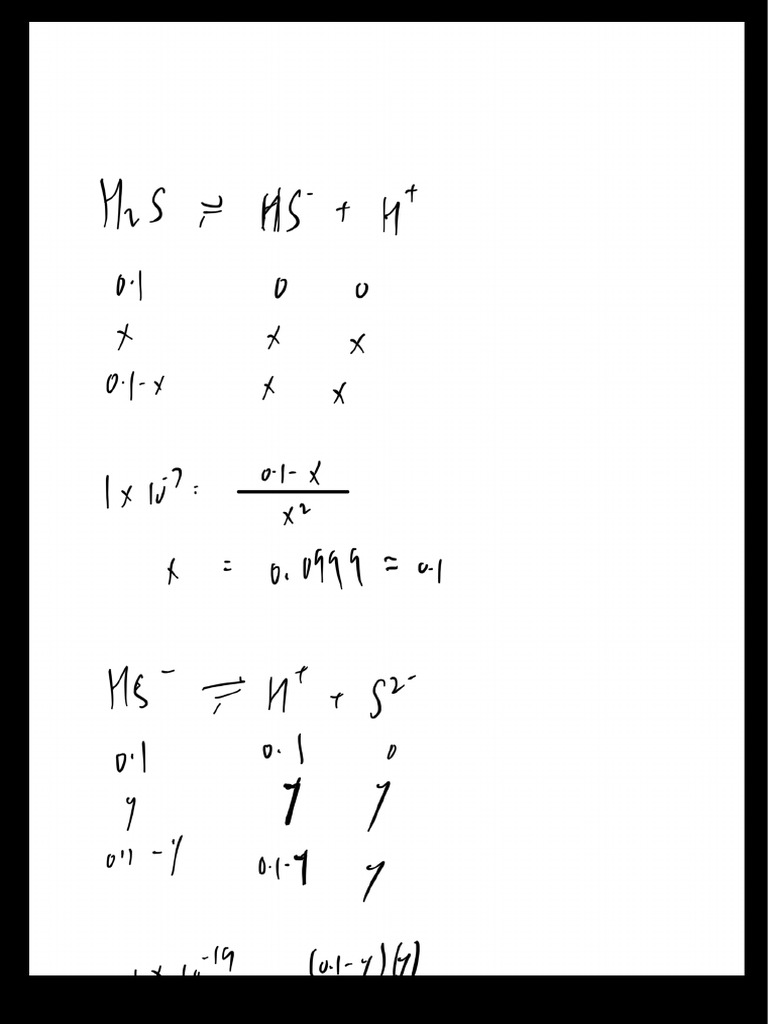 H₂S ⇌ HS⁻ + H⁺
0.1 0 0
x x x
0.1-x x x
1 x 10⁻⁷ = (0.1-x)/x²
x = 0.0999 = 0.1
HS⁻ ⇌ H⁺ + S²⁻
0.1 0.1 0
y y y
0.1 - y 0.1-y y
1 x 10⁻¹⁹ (0.1-y)(y)